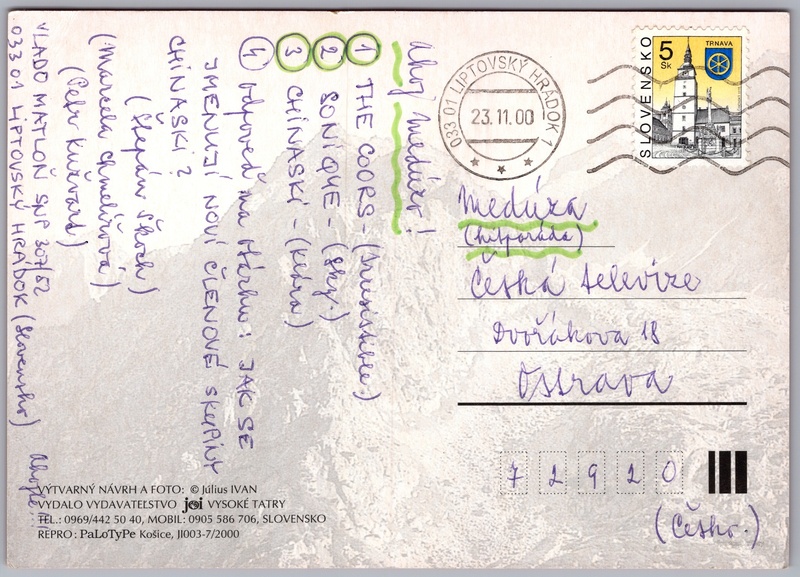 Ahoj Medúzo!
1 THE COORS - (Irresistible)
2 SONIQUE - (Sky)
3 CHINASKI - (Klára)
4 odpověď na otázku: JAK SE
JMENUJÍ NOVÍ ČLENOVÉ SKUPINY
CHINASKI?
(Štěpán Škoch)
(Marcela Chmelířová)
(Petr Kužvart)
VLADO MATLOŇ SNP 307/82
033 01 LIPTOVSKÝ HRÁDOK (Slovensko)
Ahojte!!!
033 01 LIPTOVSKÝ HRÁDOK 1
23.11.00
SLOVENSKO
5 Sk
TRNAVA
Medúza
(hitparáda)
Česká televize
Dvořákova 18
Ostrava
7 2 9 2 0
(Česko.)
VÝTVARNÝ NÁVRH A FOTO: © Július IVAN
VYDALO VYDAVATEĽSTVO joi VYSOKÉ TATRY
TEL.: 0969/442 50 40, MOBIL: 0905 586 706, SLOVENSKO
REPRO: PaLoTyPe Košice, JI003-7/2000